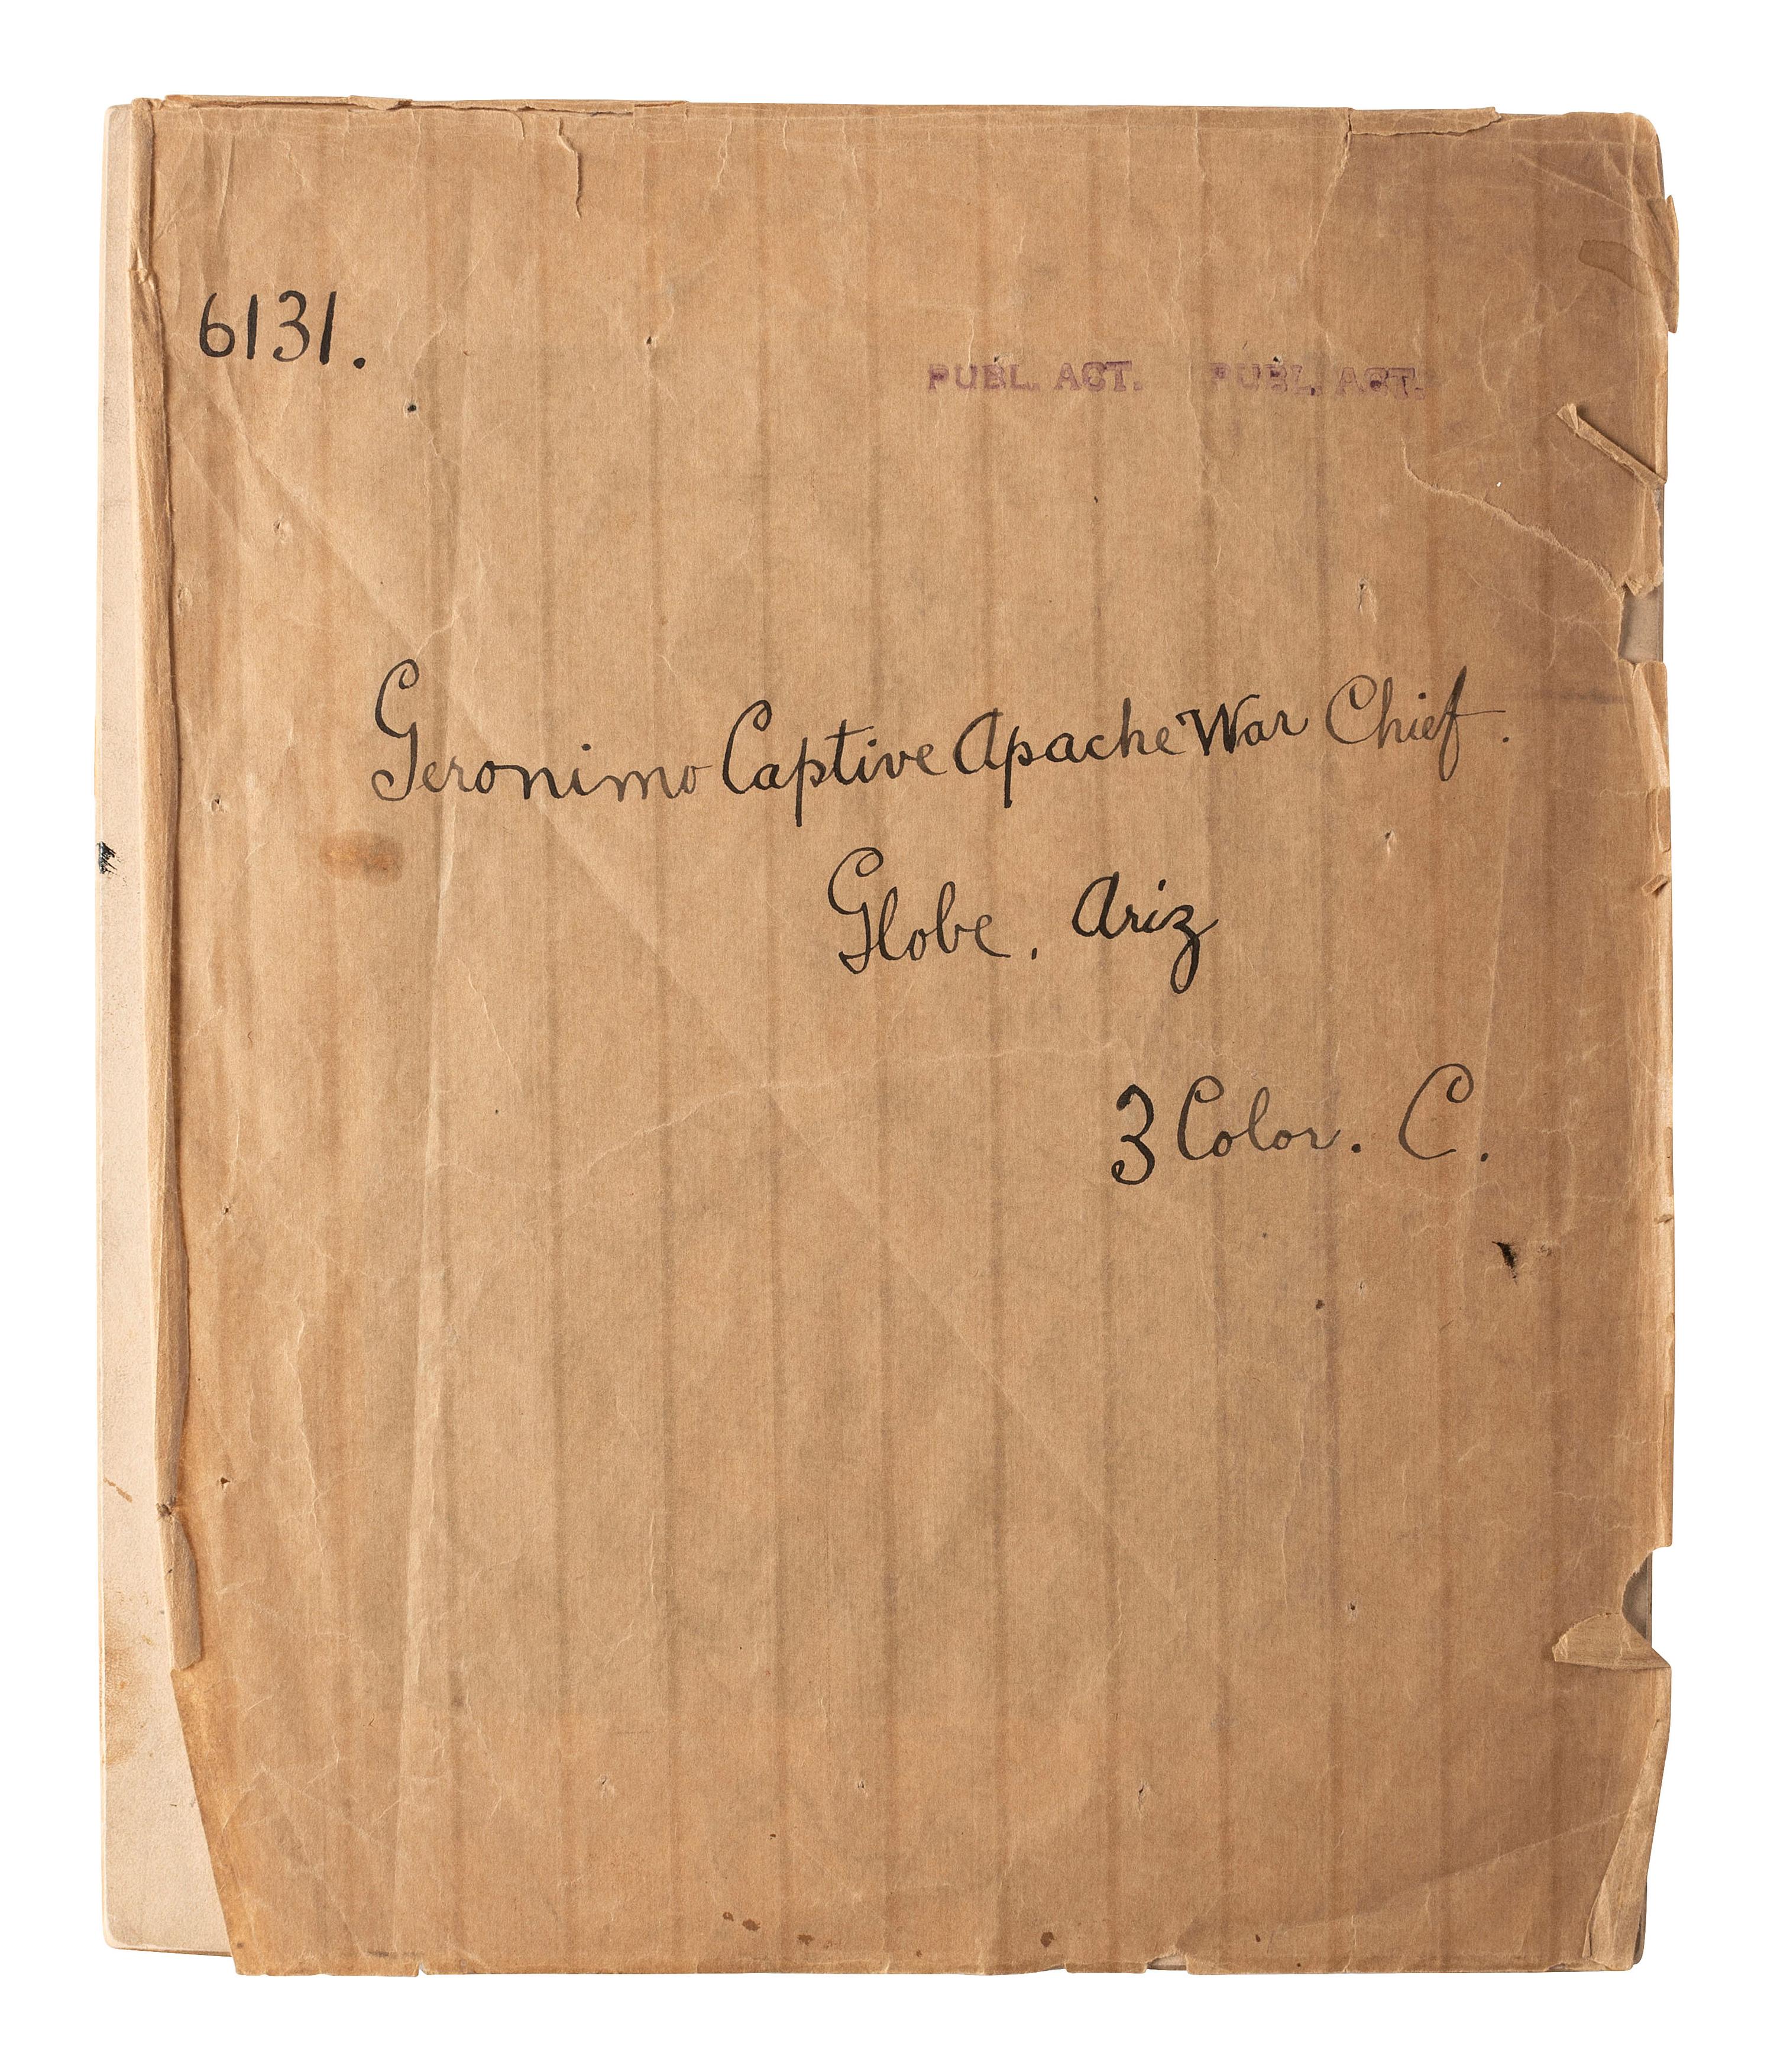 6131.
PUBL. ACT. PUBL. ACT.
Geronimo Captive Apache War Chief.
Globe. Ariz
3 Color. C.